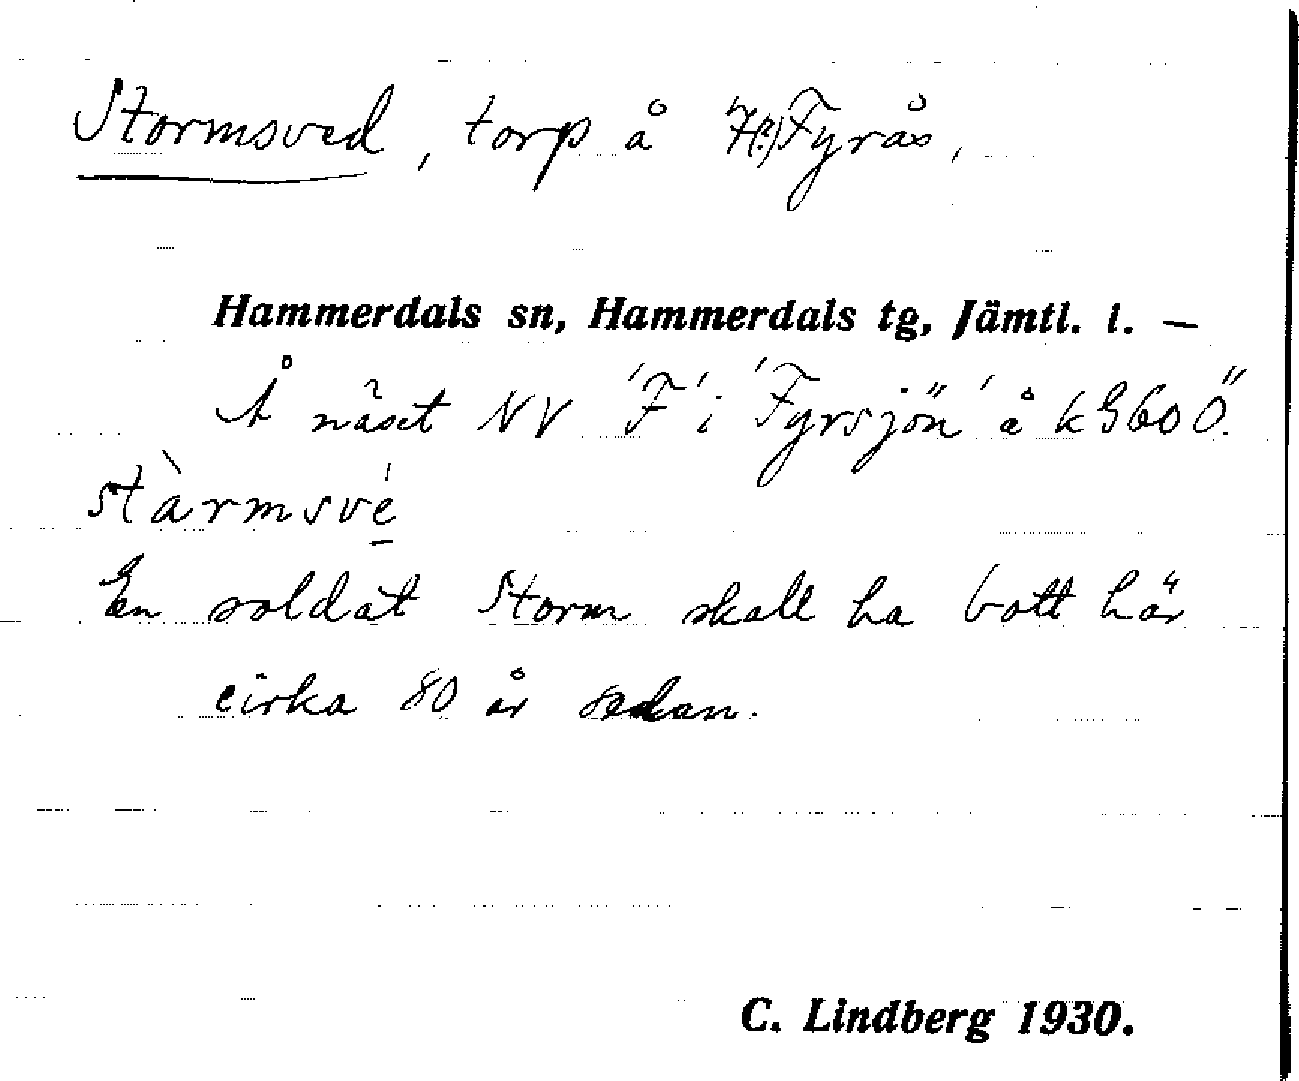 Stormsved, torp å 7(?) Fyrås,
Hammerdals sn, Hammerdals tg, Jämtl. l. —
Å näset NV 'F' i 'Fyrsjön' å k G60 Ö.
stàrmsvé
En soldat Storm skall ha bott här
cirka 80 år sedan.
C. Lindberg 1930.